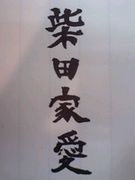 柴田家愛